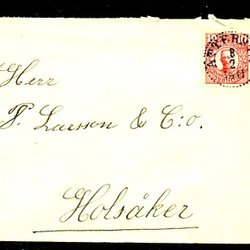 Herr
P. Larsson & C:o.
Holsåker
8
2